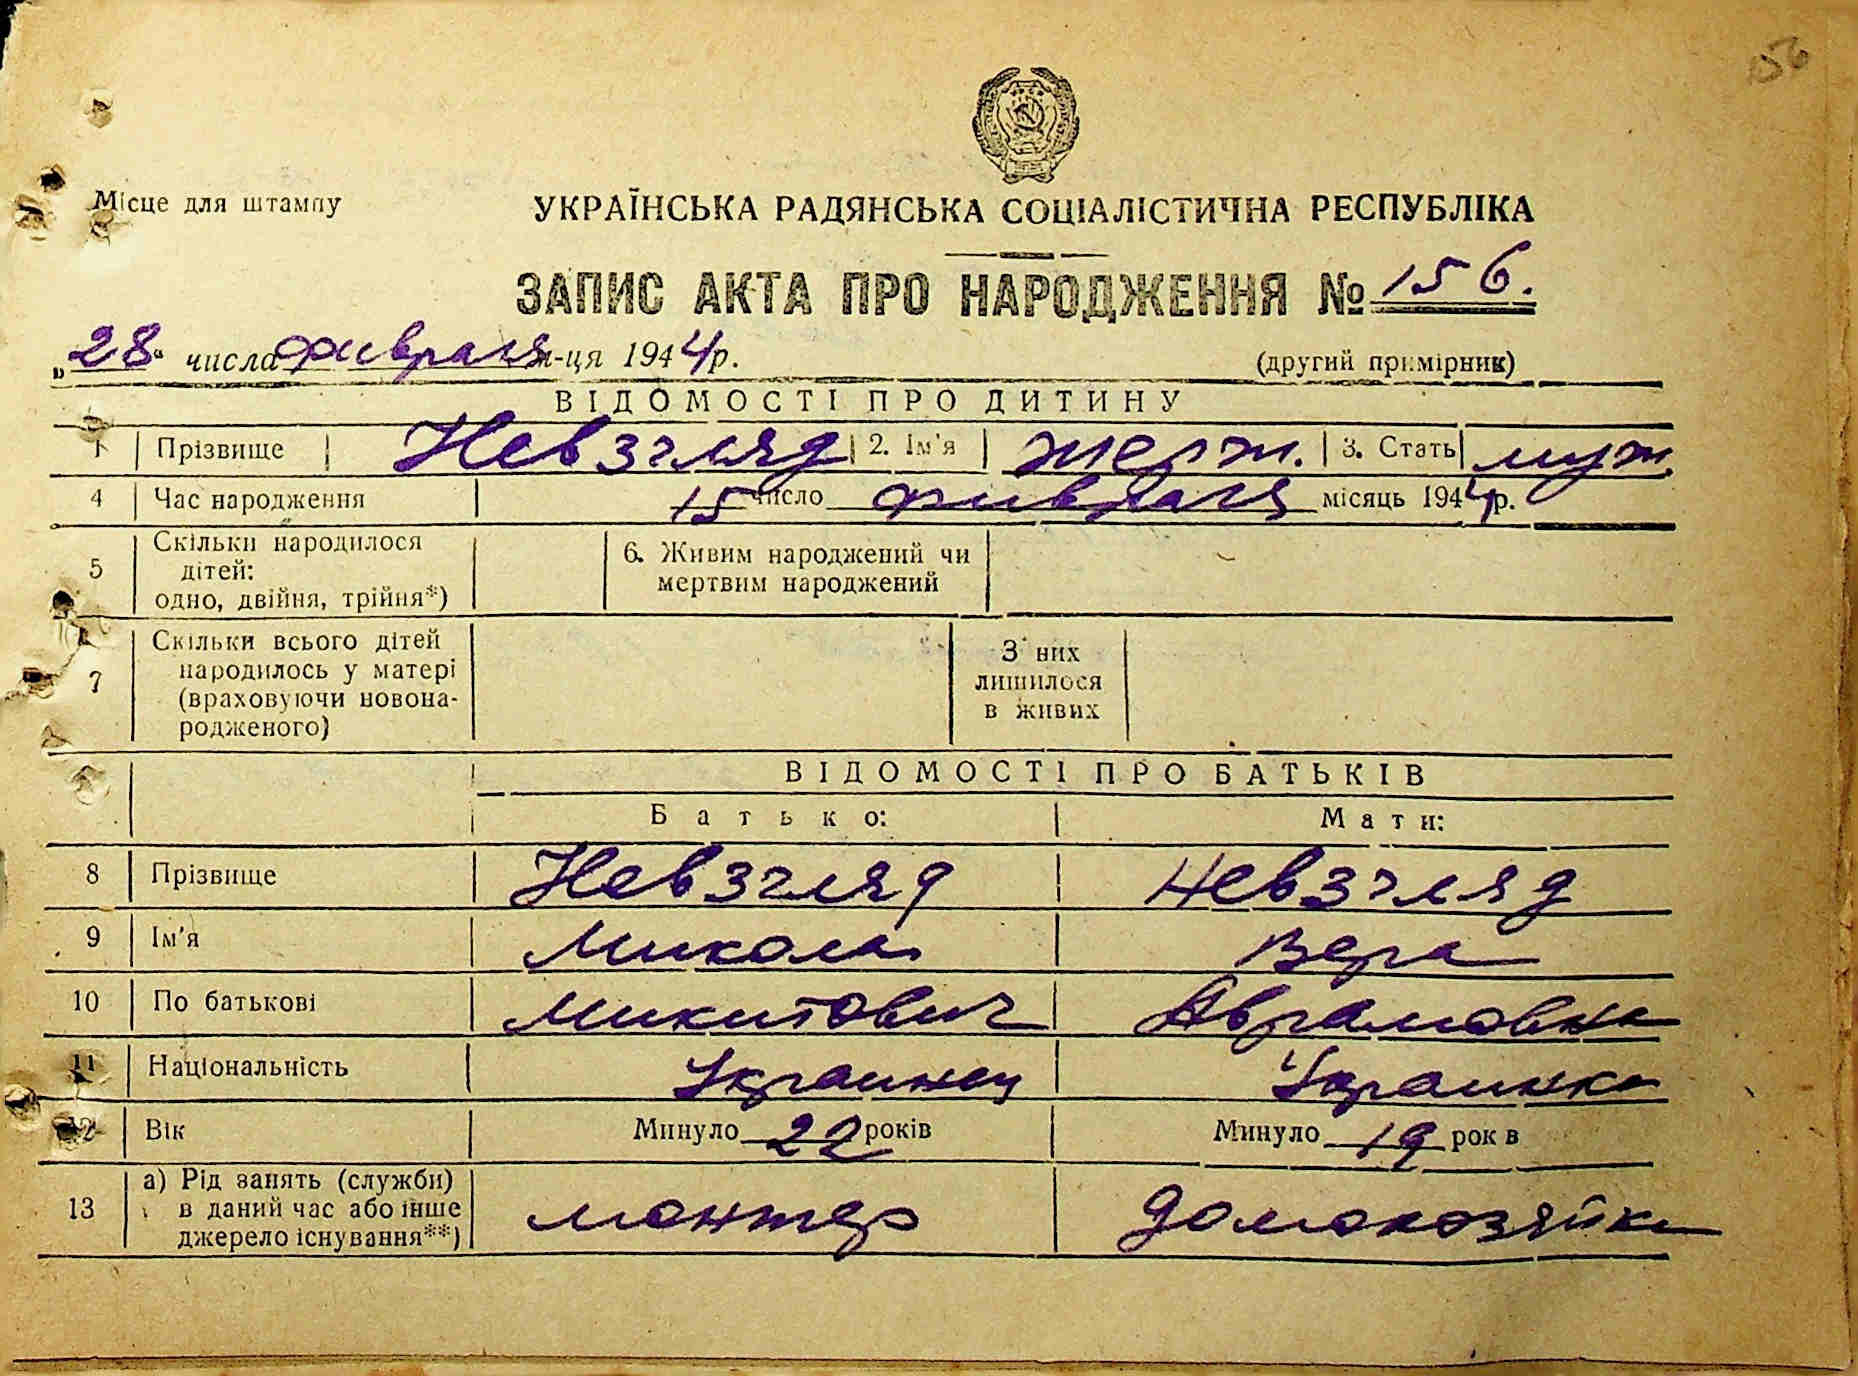 156
Місце для штампу
УКРАЇНСЬКА РАДЯНСЬКА СОЦІАЛІСТИЧНА РЕСПУБЛІКА
ЗАПИС АКТА ПРО НАРОДЖЕННЯ № 156.
„28“ числа фивраля м-ця 1944 р.
(другий примірник)
ВІДОМОСТІ ПРО ДИТИНУ
1 Прізвище Невзгляд 2. Ім'я 3. Стать муж.
4 Час народження 15 число фивраля місяць 1944 р.
5 Скільки народилося дітей: одно, двійня, трійня*) 6. Живим народжений чи мертвим народжений
7 Скільки всього дітей народилось у матері (враховуючи новонародженого) З них лишилося в живих
ВІДОМОСТІ ПРО БАТЬКІВ
Батько: Мати:
8 Прізвище Невзгляд Невзгляд
9 Ім'я Микола Вера
10 По батькові Микитович Аврамовна
11 Національність Украинец Украинка
12 Вік Минуло 22 років Минуло 19 років
13 а) Рід занять (служби) в даний час або інше джерело існування**) монтер домохозяйка